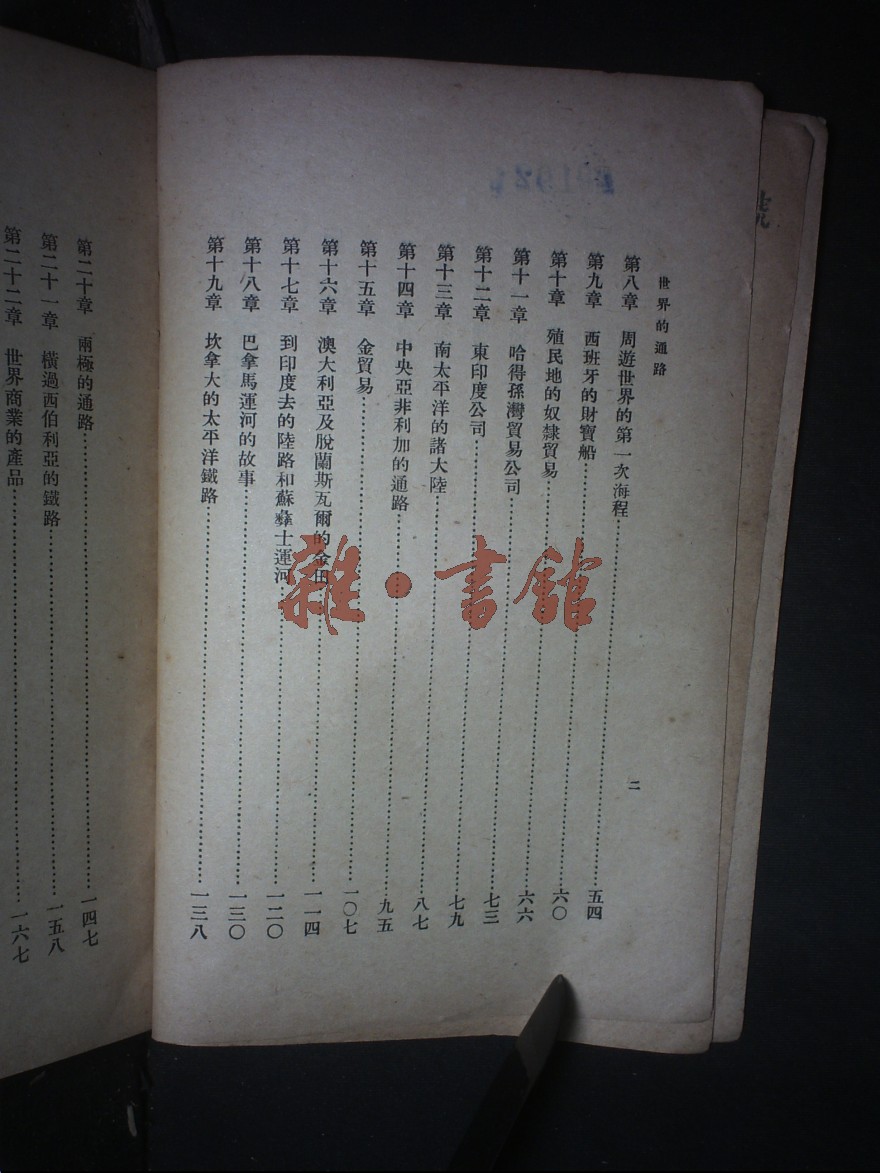 世界的通路
二
第八章　周遊世界的第一次海程……五四
第九章　西班牙的財寶船……六〇
第十章　殖民地的奴隸貿易……六六
第十一章　哈得孫灣貿易公司……七三
第十二章　東印度公司……七九
第十三章　南太平洋的諸大陸……八七
第十四章　中央亞非利加的通路……九五
第十五章　金貿易……一〇七
第十六章　澳大利亞及脫蘭斯瓦爾的金田……一一四
第十七章　到印度去的陸路和蘇彝士運河……一二〇
第十八章　巴拿馬運河的故事……一三〇
第十九章　坎拿大的太平洋鐵路……一三八
第二十章　兩極的通路……一四七
第二十一章　橫過西伯利亞的鐵路……一五八
第二十二章　世界商業的產品……一六七
雜·書館